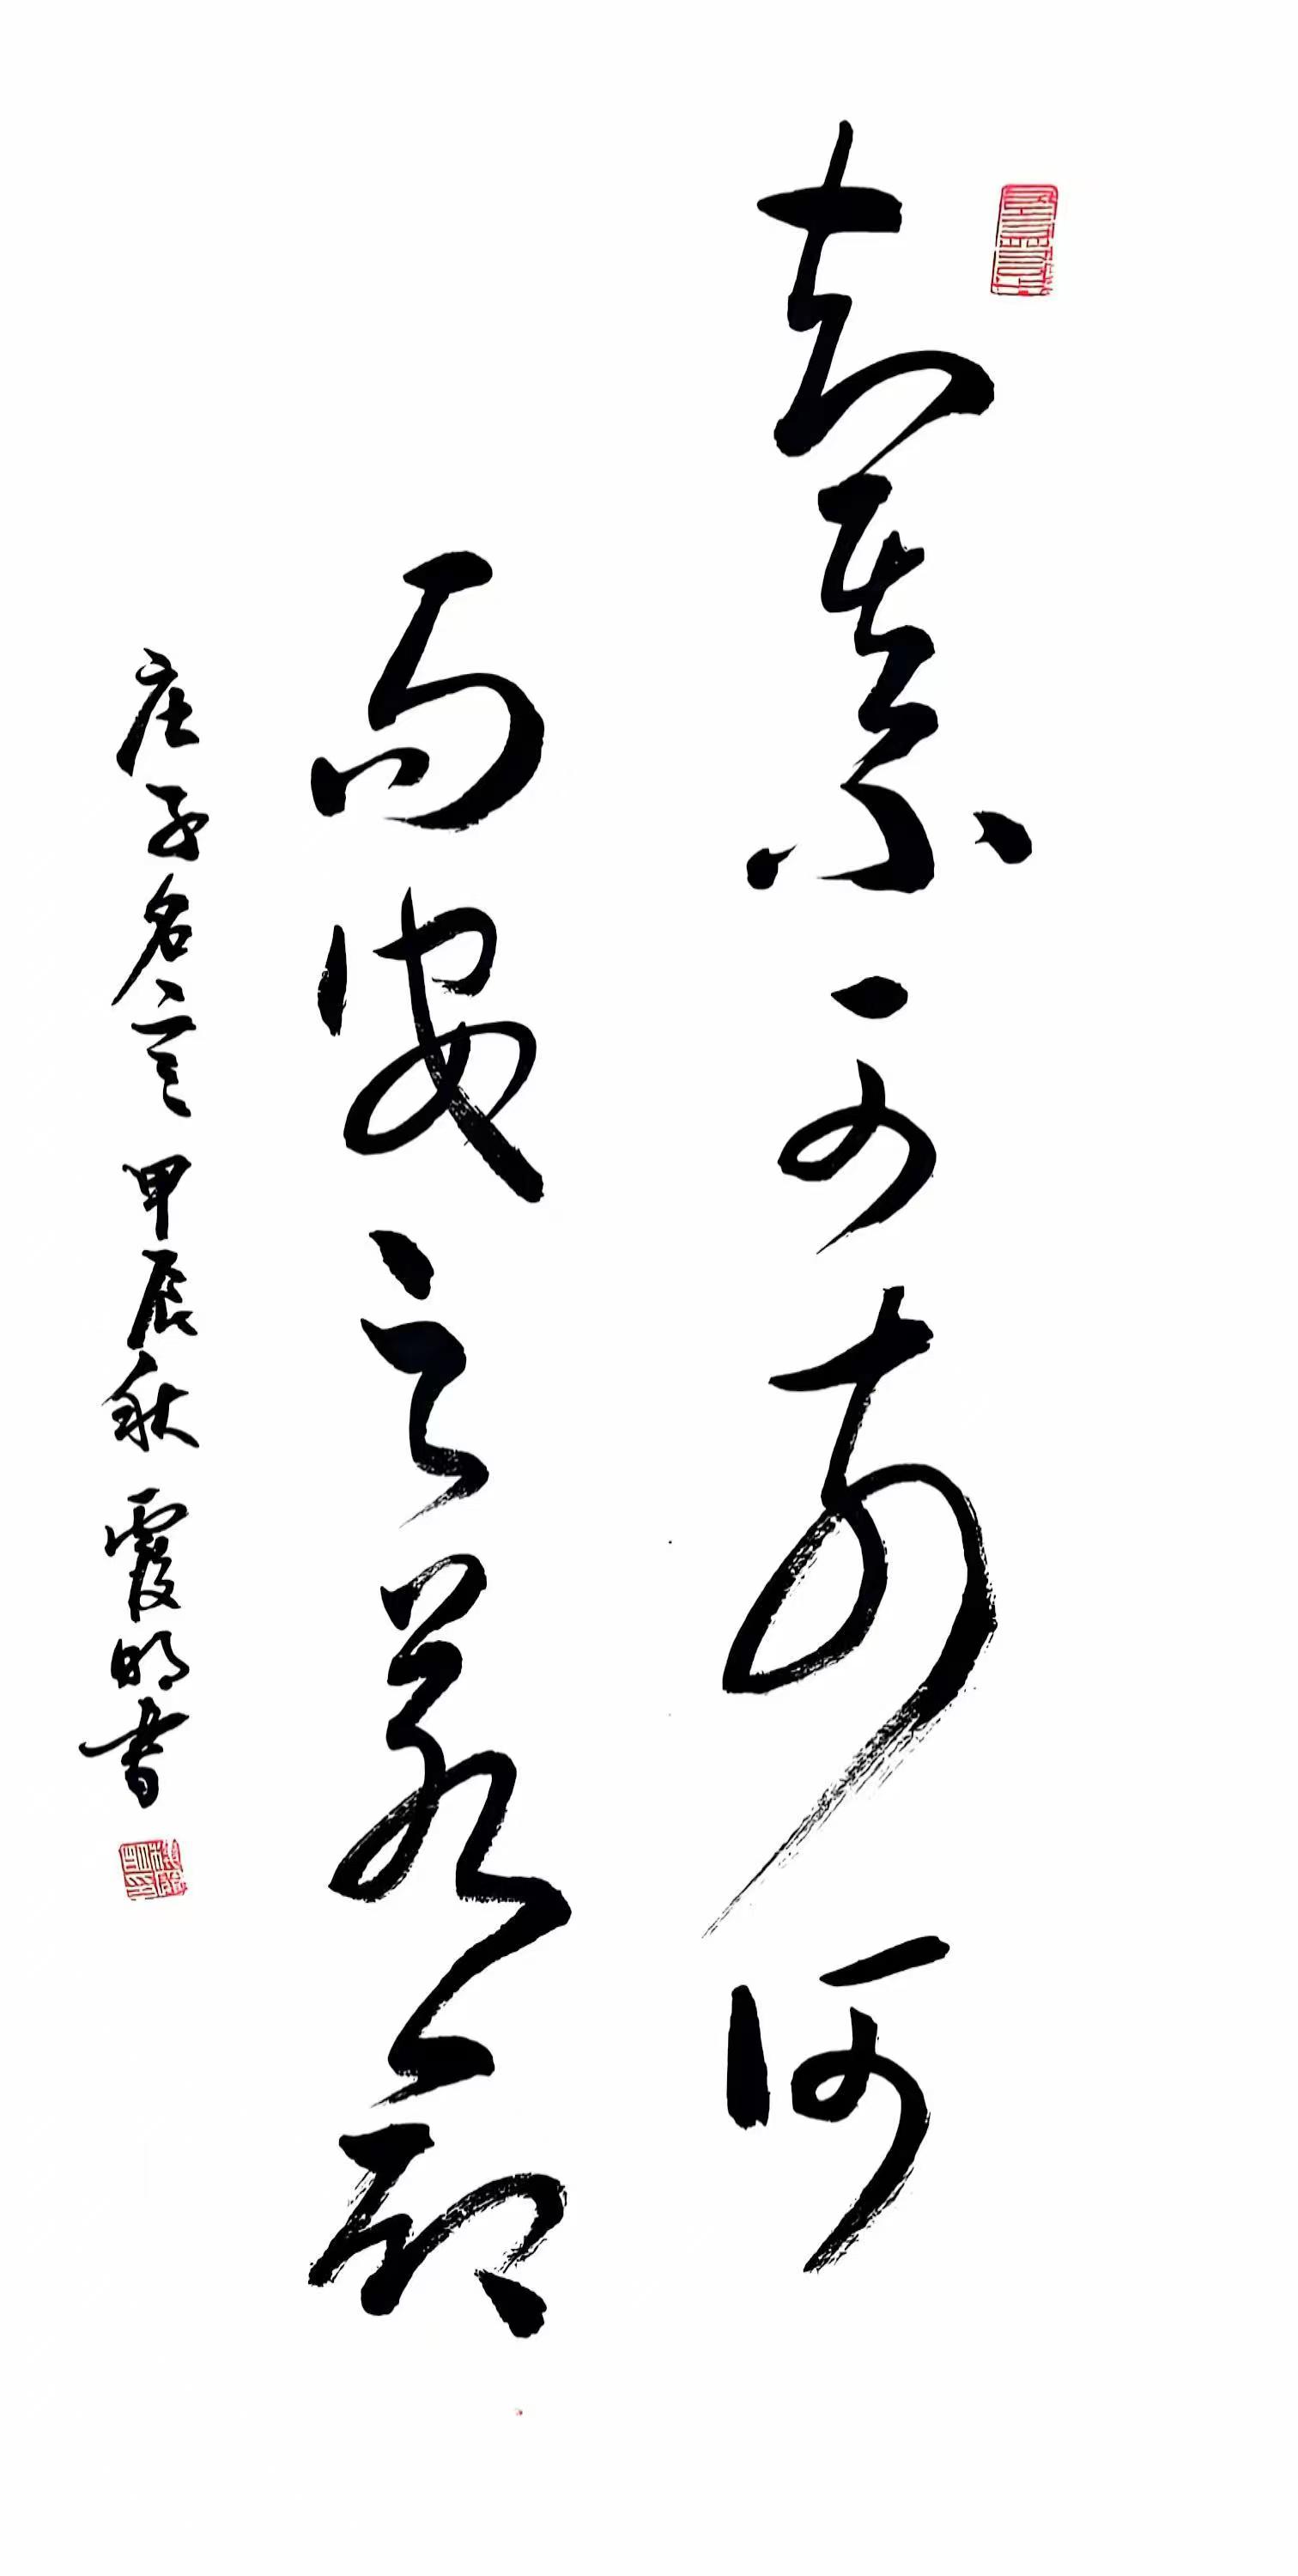 知其不可奈何
而安之若命
庄子名言 甲辰秋 霞明书